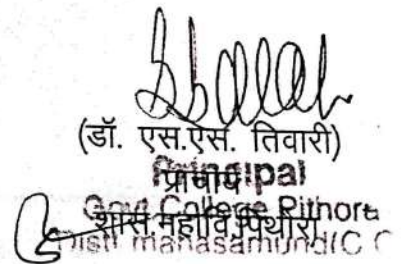 (डॉ. एस.एस. तिवारी)
Principal
प्राचार्य
Govt College Pithora
शास.महावि.पिथौरा
Distt mahasamund(C